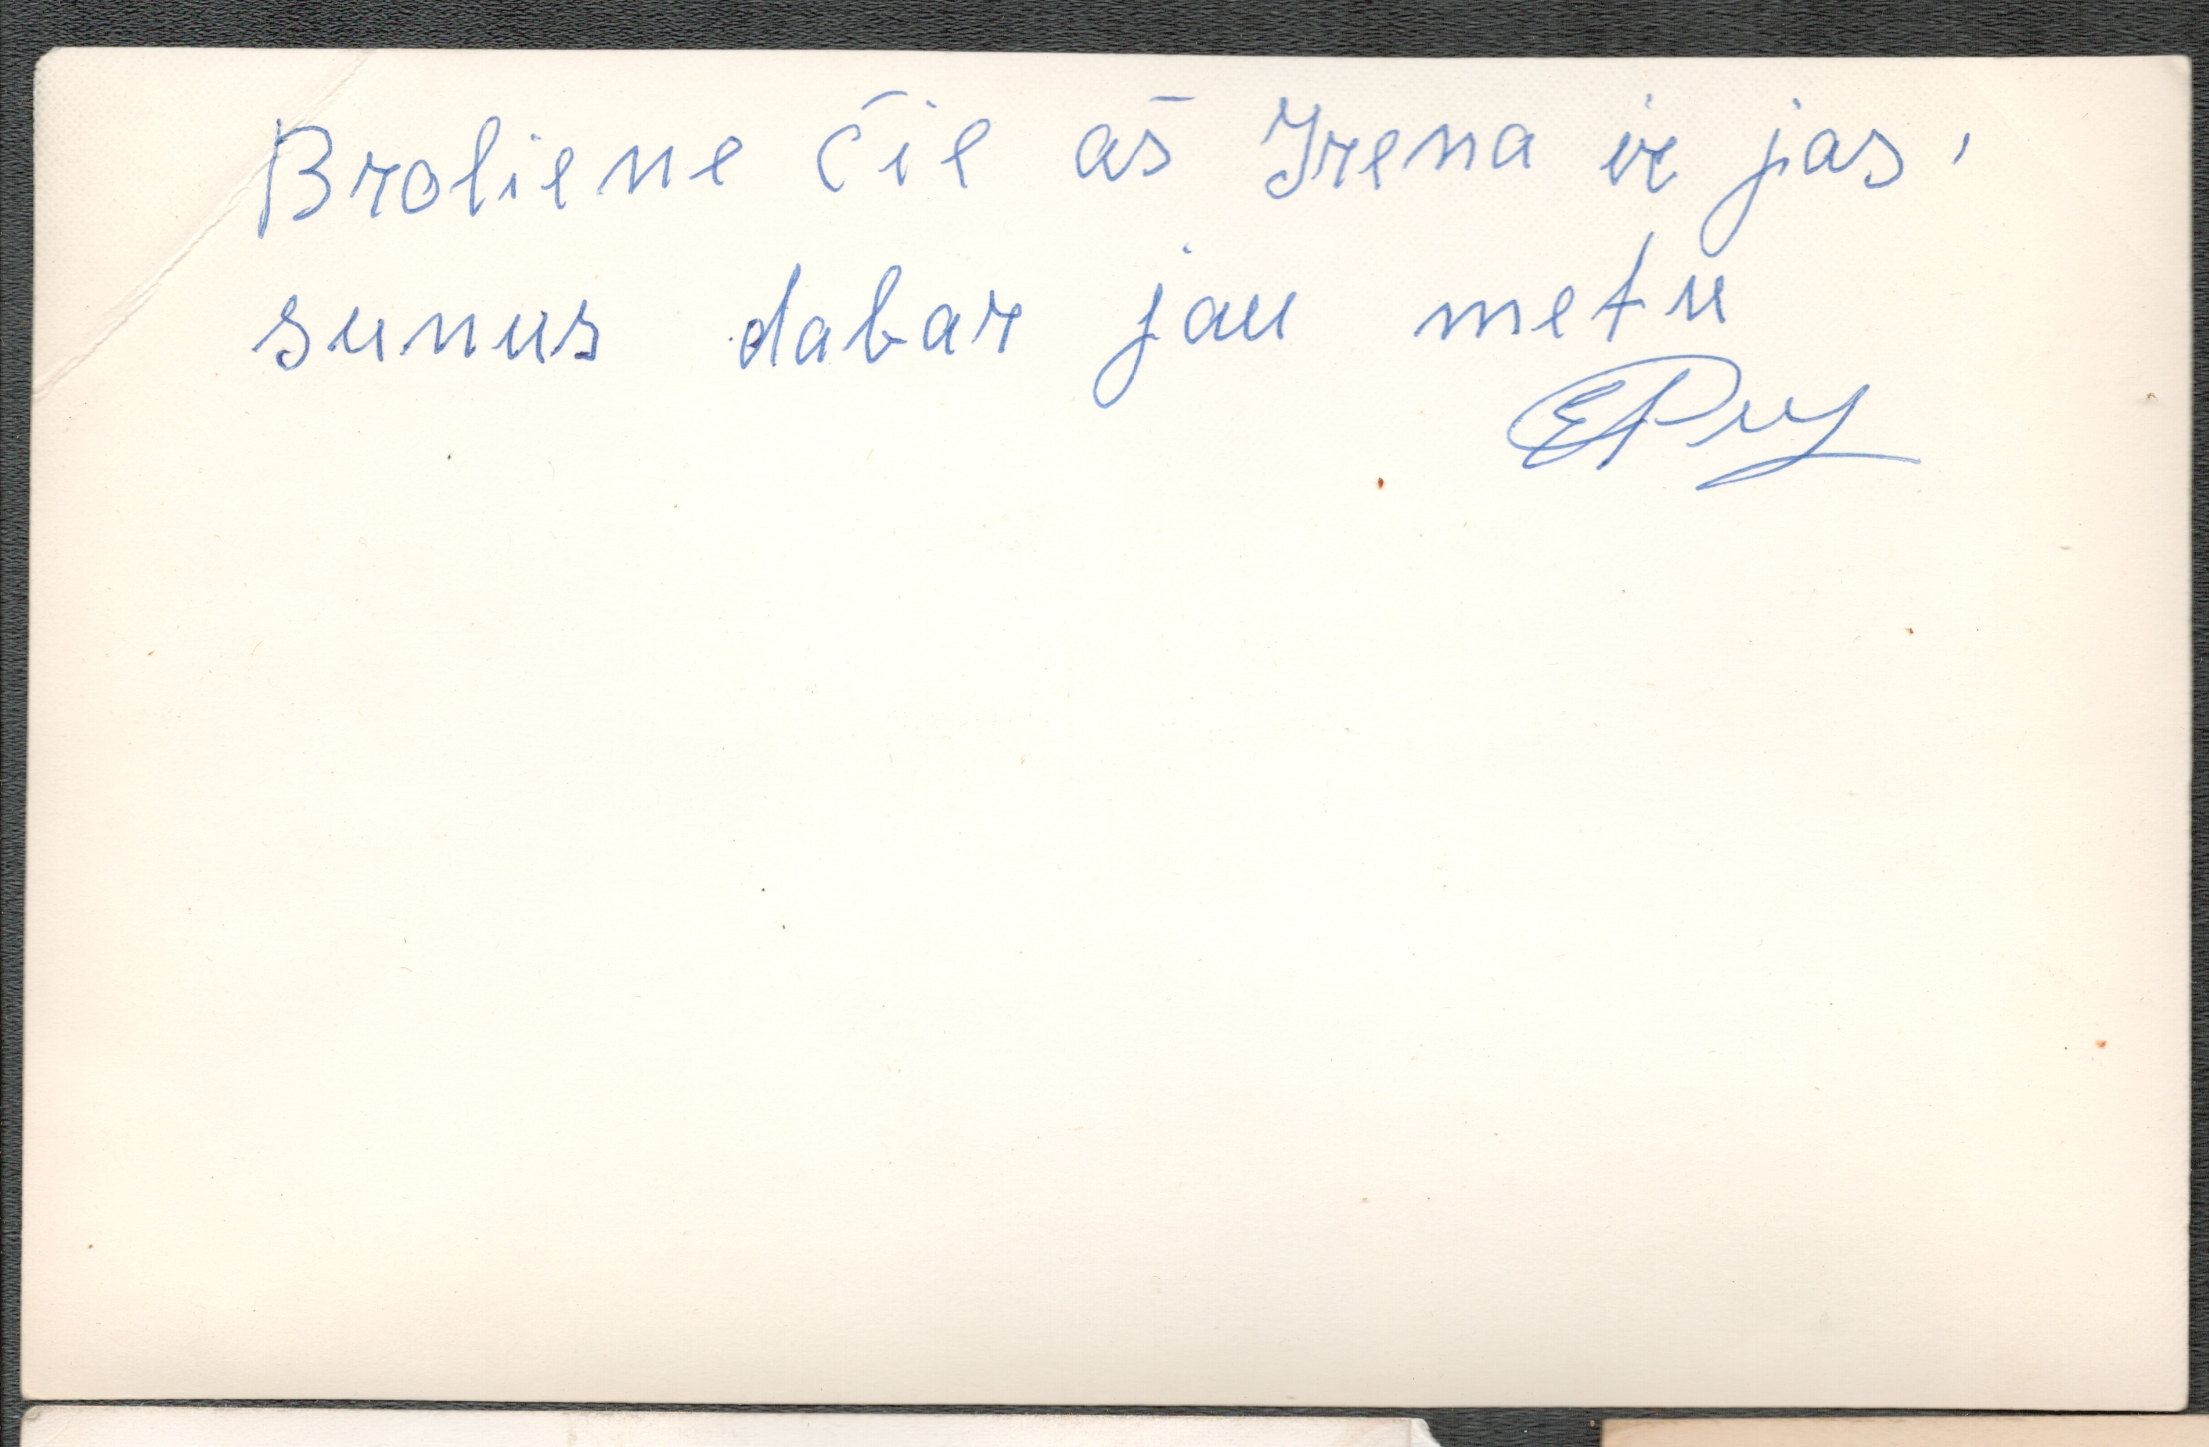 Broliene čie aš Irena ir jos,
sunus dabar jau metu